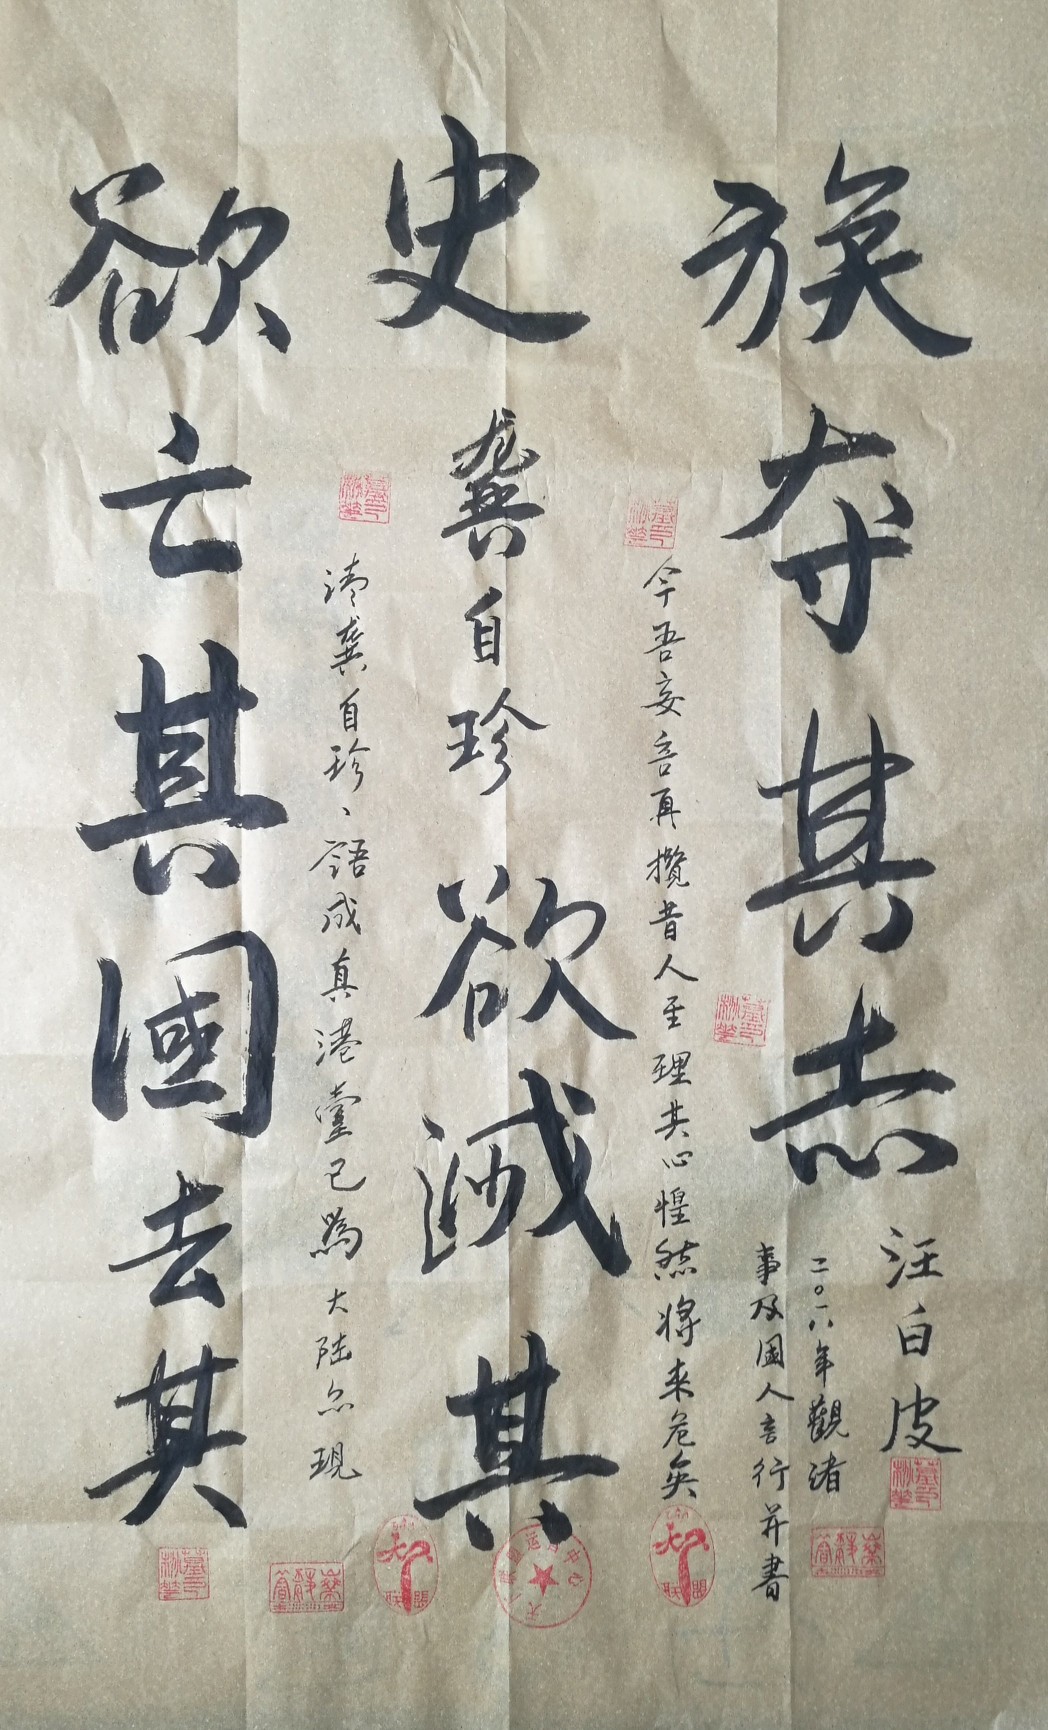 欲亡其國去其
清龚自珍、語成真港臺已為大陆尔現
史龚自珍欲滅其
今吾妄言再攬昔人至理其心惶然将来危矣
族夺其志
二〇一八年觀诸
事及國人言行并書
汪白皮
联盟
联盟